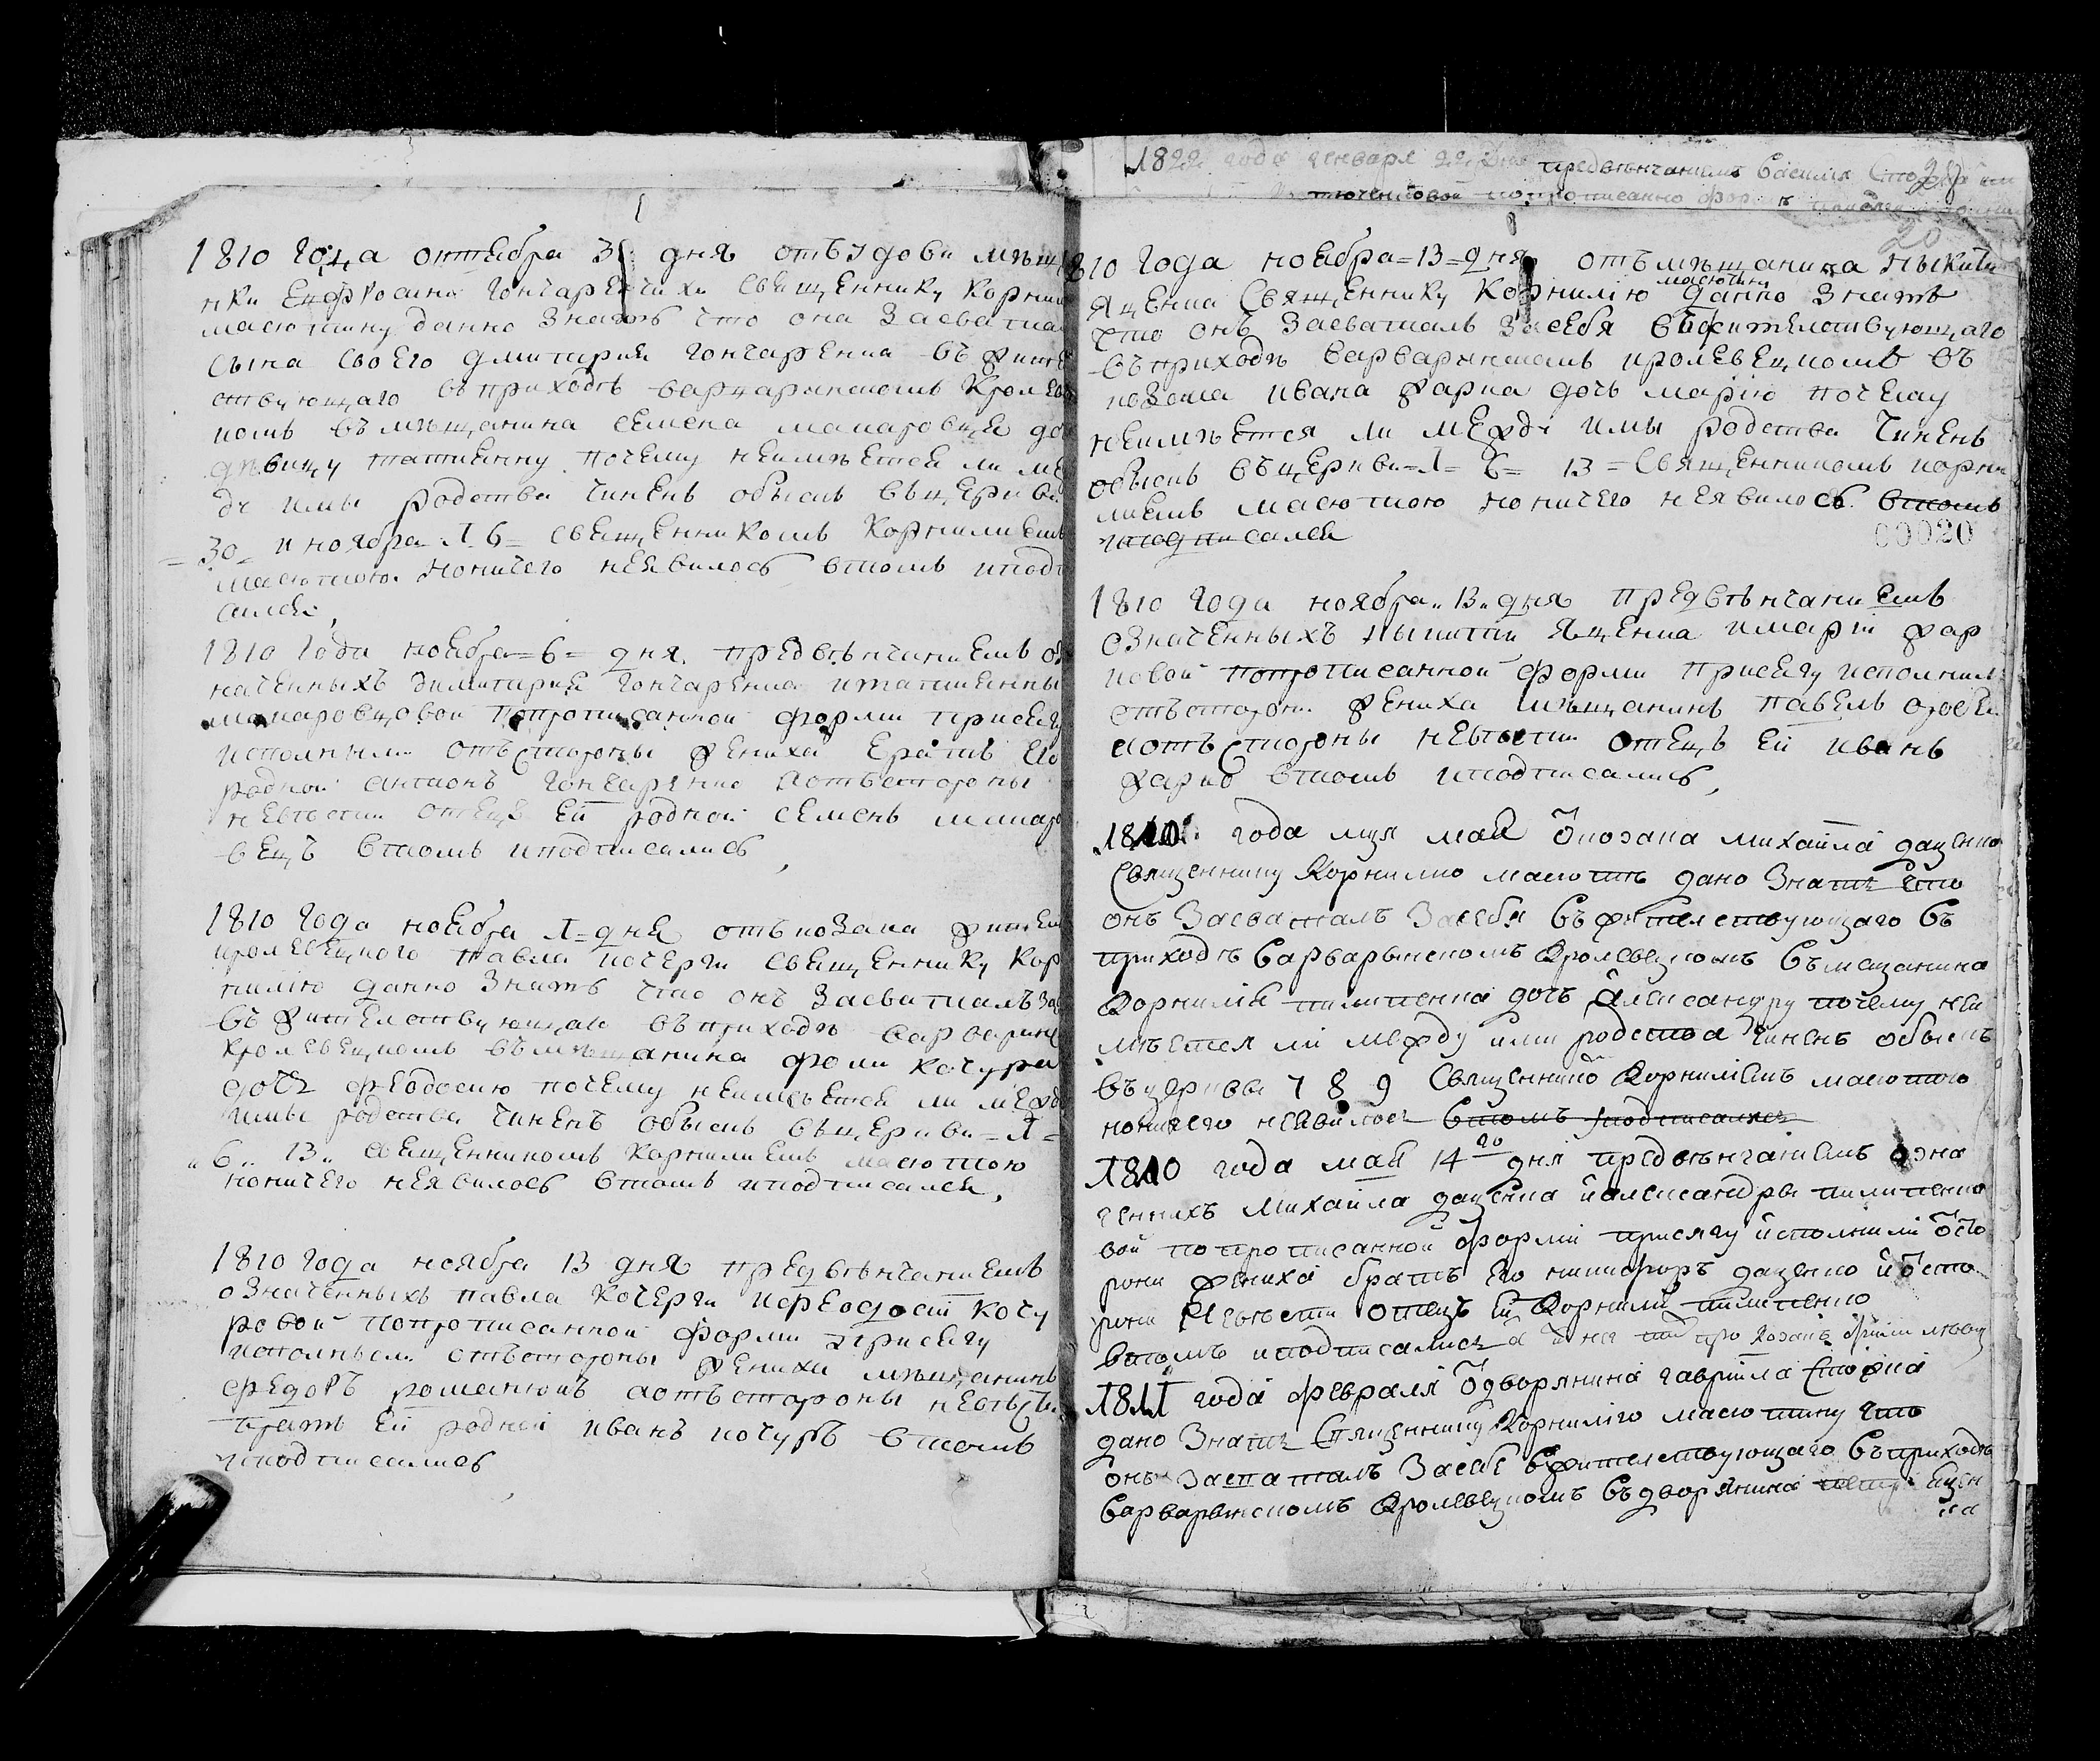 1810 года октебра 31 дня отъ удови мѣщ
нки Ецфросини Гончаренчихи Свещеннику Корни
масютину данно знать что она засватал
сына своего дмитрия гончаренка въ жите
ствующаго въ приходѣ варварынскомъ Кролев
комъ въ мѣщанина семена макаровца до
дѣвицу татиянну почему неимѣется ли ме
ду имы родства чиненъ обыскъ въ церкви
=30= и ноября 1. 6= свещенникомъ Корнилиемъ
масютою. Но ничего неявилось втомъ иподп
салея,
1810 года ноебра=6= дня. предвѣнчаниемъ оз
наченныхъ димитрия гончаренка и татиянны
макаровцовой попрописанной форми присягу
исполныли отъ стороны жениха братъ его
родной антонъ гончаренко аотъ стороны
невѣсти отецъ ей родной семенъ макаро
вецъ втомъ иподписались,
1810 года ноебра 1=дня отъ козака жител
кролевецкого павла кочерги свещеннику Кор
нилию данно знать что онъ засваталъ за
въ жителствующаго въ приходѣ варварин
кролевецкомъ въ мѣщанина фоми кочури
дочь феодосию почему неимѣется ли межд
имы родства чиненъ обыскъ въ церкви=1=
„6„ 13„ свещенникомъ Корнилиемъ масютою
но ничего неявилось втомъ иподписался,
1810 года ноября 13 дня предвѣнчаниемъ
означенныхъ павла кочерги ифеодосіи кочу
ровой попрописанной форми присягу
исполныли отъ стороны жениха мѣщанинъ
федоръ романюкъ аотъ стороны невѣсти
братъ ей родней иванъ кочуръ втомъ
иподписались
1822 года генваря 22 дня предвѣнчаниемъ Василия
попрописанно фор
20
1810 года ноебра=13=дня отъ мѣщанина Ныкити
масютину
Яценка Священнику Корнилію данно знать
что онъ засваталъ засебя въ жителствующаго
въ приходѣ варварынскомъ кролевецкомъ въ
козака ивана жарка дочь марію почему
неимѣется ли между имы родства чиненъ
обыскъ въ церкви=1= 6= 13=Священникомъ корни
лиемъ масютою но ничего неявилось. втомъ
иподписалея
00020
1810 года ноября„13„дня предвѣнчаниемъ
означенныхъ Ныкити Яценка имаріи жар
ковой попрописанной форми присягу исполнил
отъ сторони жениха мѣщанинъ павелъ
аотъ стороны невѣсти отецъ ей иванъ
жарко втомъ иподписались,
1810 года мця мая ѿ козака михаила даценка
священнику Корнилию масютѣ дано знать что
онъ засваталъ засебя въ жителствующаго въ
приходѣ варварынскомъ Кролевецкомъ въ мещанина
Корнилія пилипенка дочь александру почему неи
мѣется ли между ими родства чиненъ обыскъ
въ церкви 7 8 9 священнико Корнилиемъ масютою
ноничего неявилось втомъ уподписалися
1810 года мая 14го дня предвѣнчаниемъ озна
ченнихъ михаила даценка иалександры пилипенко
вой попрописанной форми присягу исполнили ѿсто
рони жениха братъ его никифоръ даценко иѿсто
рони невѣсти отецъ ей Корнилий пилипенко
втомъ иподписалися
1811 года февраля ѿдворянина гаврііла Сможка
дано знать священнику Корнилію масютину что
онъ засваталъ засебе въ жителствующаго въ приходѣ
варварынскомъ Кролевецкомъ въ дворянина петра яцен
ка